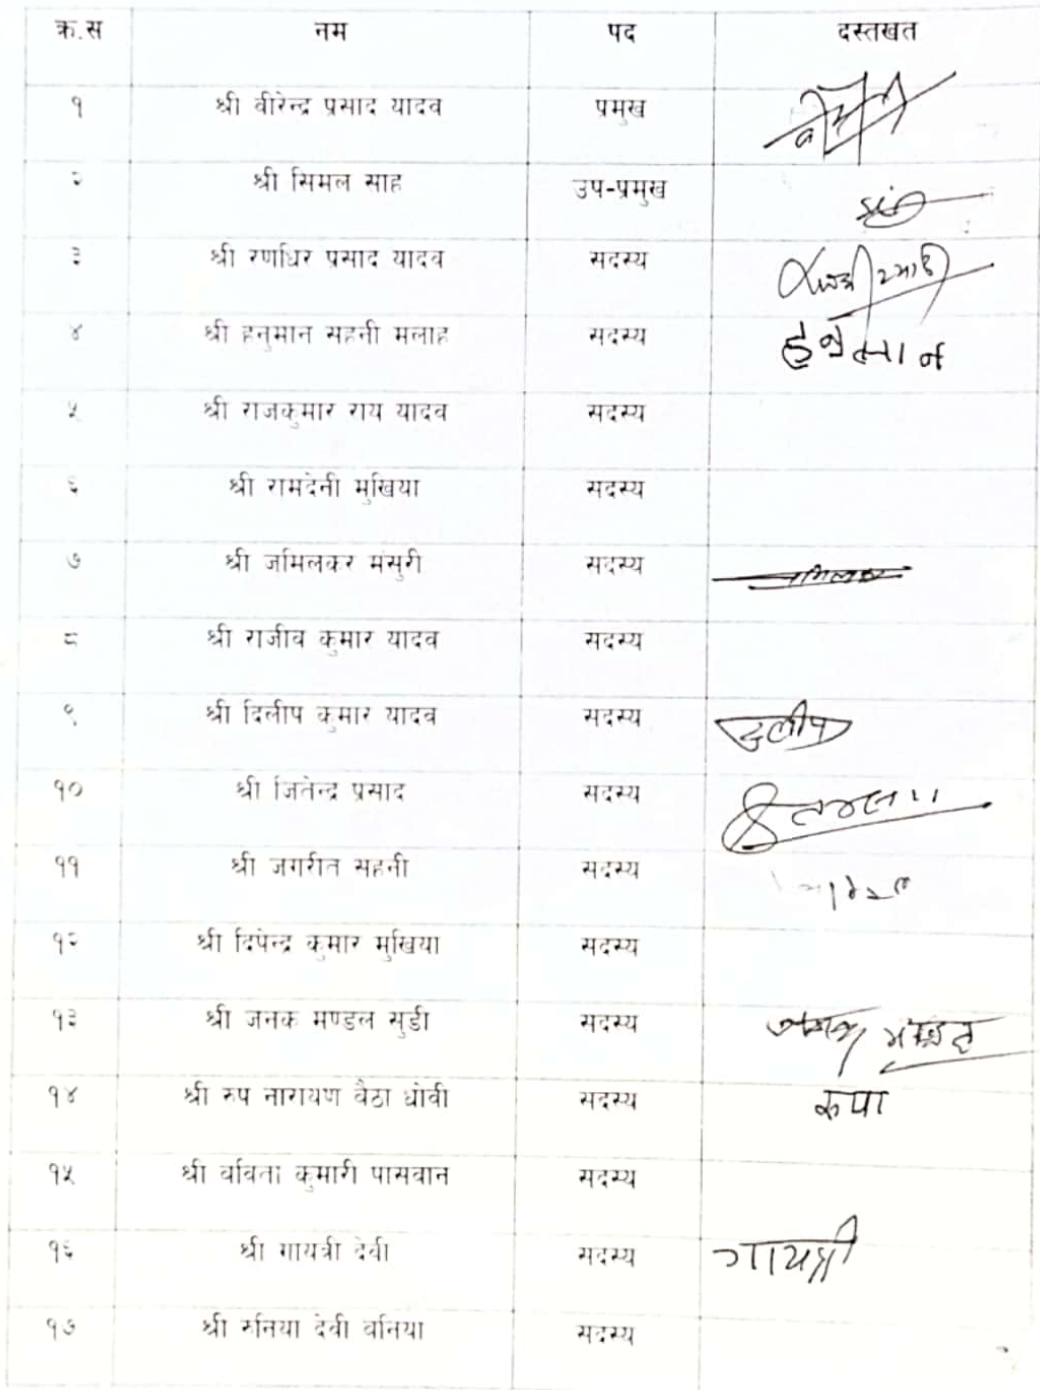 क्र.स नम पद दस्तखत
१ श्री वीरेन्द्र प्रसाद यादव प्रमुख
२ श्री सिमल साह उप-प्रमुख
३ श्री रणधिर प्रसाद यादव सदस्य
४ श्री हनुमान सहनी मलाह सदस्य हनुमान
५ श्री राजकुमार राय यादव सदस्य
६ श्री रामदेनी मुखिया सदस्य
७ श्री जमिलकर मंसुरी सदस्य
८ श्री राजीव कुमार यादव सदस्य
९ श्री दिलीप कुमार यादव सदस्य दुलीप
१० श्री जितेन्द्र प्रसाद सदस्य
११ श्री जगरीत सहनी सदस्य
१२ श्री दिपेन्द्र कुमार मुखिया सदस्य
१३ श्री जनक मण्डल सुडी सदस्य
१४ श्री रुप नारायण बैठा धोवी सदस्य रुपा
१५ श्री वविता कुमारी पासवान सदस्य
१६ श्री गायत्री देवी सदस्य गायत्री
१७ श्री रुनिया देवी वनिया सदस्य